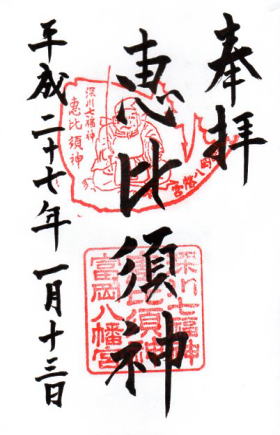 奉拝
恵比須神
平成二十七年一月十三日
深川七福神
恵比須神
富岡八幡宮
深川七福神
恵比須神
富岡八幡宮